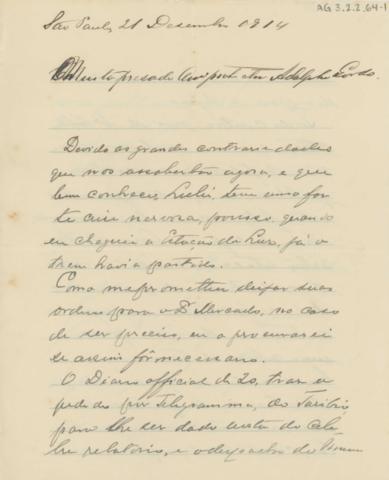 AG 3.2.2.64-1
São Paulo, 21 Dezembro 1914
Muito presado Adolpho Gordo.
Devido as grandes contrariedades
que nos assoberbão agora, e que
bem conheces, teve uma for
te crise nervosa, por isso, quando
eu cheguei a Estação da Luz, já o
trem havia partido.
Como me prometteu deixar suas
ordens para o Dr no caso
de ser preciso, eu o procurarei
se assim fôr necessario.
O Diario official de 20, traz o
pedido por Telegramma, do Toribio
para lhe ser dado vista do cele
bre relatorio, e o despacho do